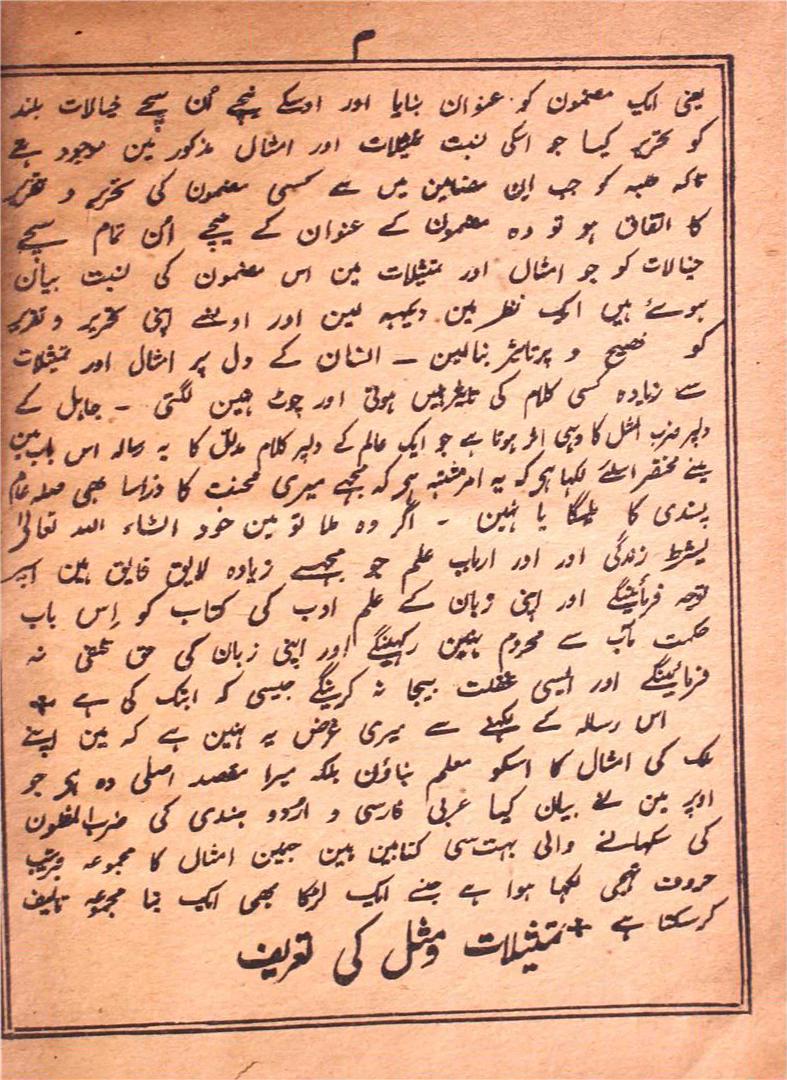 م
یعنی ایک مضمون کو عنوان بنایا اور اوسکے نیچے اُن سچے خیالات بلند
کو تحریر کیا جو اسکی نسبت تمثیلات اور امثال مذکور مین موجود تھے
تاکہ طلبہ کو جب این مضامین میں سے کسی مضمون کی تحریر و تقریر
کا اتفاق ہو تو وہ مضمون کے عنوان کے نیچے اُن تمام سچے
خیالات کو جو امثال اور تمثیلات مین اس مضمون کی نسبت بیان
ہوئے ہیں ایک نظر مین دیکہہ لین اور اونسے اپنی تحریر و تقریر
کو فصیح و پرتاثیر بنالین — انسان کے دل پر امثال اور تمثیلات
سے زیادہ کسی کلام کی تاثیر نہیں ہوتی اور چوٹ نہین لگتی - جاہل کے
دلپر ضرب المثل کا وہی اثر ہوتا ہے جو ایک عالم کے دلپر کلام مدلل کا یہ رسالہ اس باب مین
مینے مختصر اسلئے لکہا ہو کہ یہ امر مشتبہ ہو کہ مجہے میری محنت کا ذراسا بھی صلہ عام
پسندی کا ملیگا یا نہین - اگر وہ ملا تو مین خود انشاء اللہ تعالیٰ
بشرط زندگی اور اور ارباب علم جو مجہسے زیادہ لایق فایق ہین اسپر
توجہ فرمائینگے اور اپنی زبان کے علم ادب کی کتاب کو اِس باب
حکمت مآب سے محروم نہین رکہینگے اور اپنی زبان کی حق تلفی نہ
فرمائینگے اور ایسی غفلت بیجا نہ کرینگے جیسی کہ ابتک کی ہے +
اس رسالہ کے لکہنے سے میری غرض یہ نہین ہے کہ مین اپنے
ملک کی امثال کا اسکو معلم بناؤن بلکہ میرا مقصد اصلی وہ ہو جو
اوپر مین نے بیان کیا عربی فارسی و اردو ہندی کی ضرب المثلون
کی سکہانے والی بہت سی کتابین ہین جنمین امثال کا مجموعہ بترتیب
حروف تہجی لکہا ہوا ہے جنسے ایک لڑکا بھی ایک نیا مجموعہ تالیف
کرسکتا ہے +
تمثیلات و مثل کی تعریف